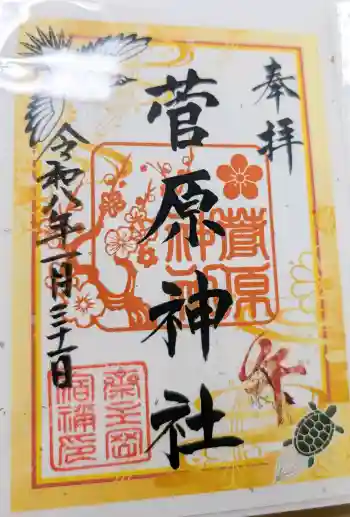 奉拝
菅原神社
令和八年一月三十一日
菅原
神社